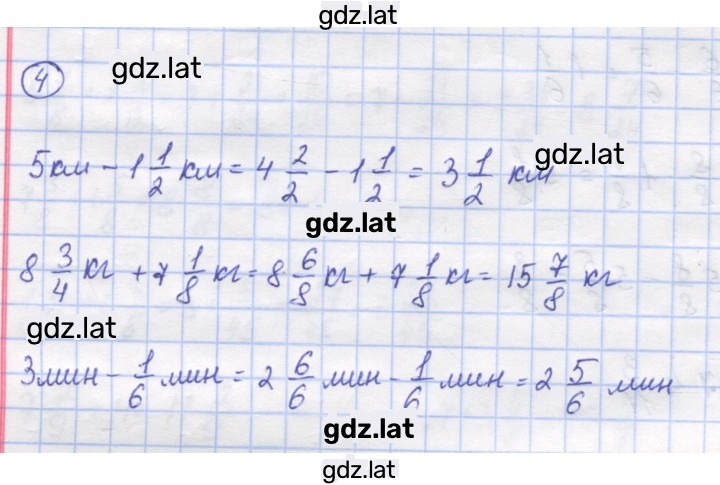 gdz.lat
4
gdz.lat
5км - 1 1/2 км = 4 2/2 - 1 1/2 = 3 1/2 км
gdz.lat
gdz.lat
8 3/4 кг + 7 1/8 кг = 8 6/8 кг + 7 1/8 кг = 15 7/8 кг
gdz.lat
3мин - 1/6 мин = 2 6/6 мин - 1/6 мин = 2 5/6 мин
gdz.lat
gdz.lat